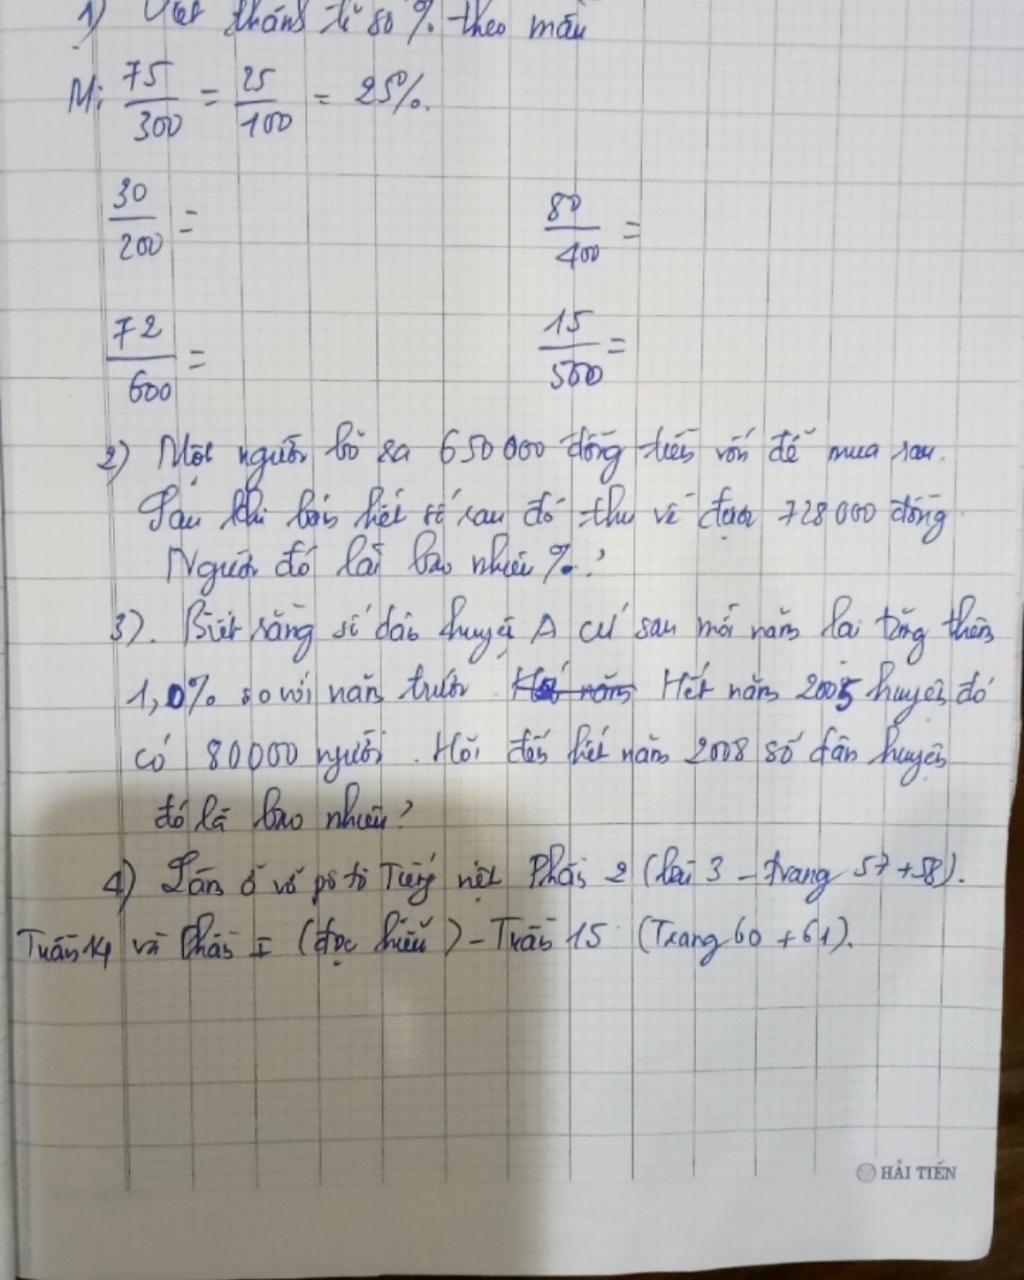 1) Viết thành tỉ số % theo mẫu
M: 75/300 = 25/100 = 25%.
30/200 = 80/400 =
72/600 = 15/500 =
2) Một người bỏ ra 650 000 đồng tiền vốn để mua rau.
Sau khi bán hết số rau đó thu về được 728 000 đồng.
Người đó lãi bao nhiêu %?
3). Biết rằng số dân huyện A cứ sau mỗi năm lại tăng thêm
1,0% so với năm trước. Hết năm 2005 huyện đó
có 80000 người. Hỏi đến hết năm 2008 số dân huyện
đó là bao nhiêu?
4) Làm ở vở pô tô Tiếng việt Phần 2 (bài 3 - trang 57 + 58).
Tuần 14 và Phần I (đọc hiểu) - Tuần 15 (Trang 60 + 61).
HẢI TIẾN